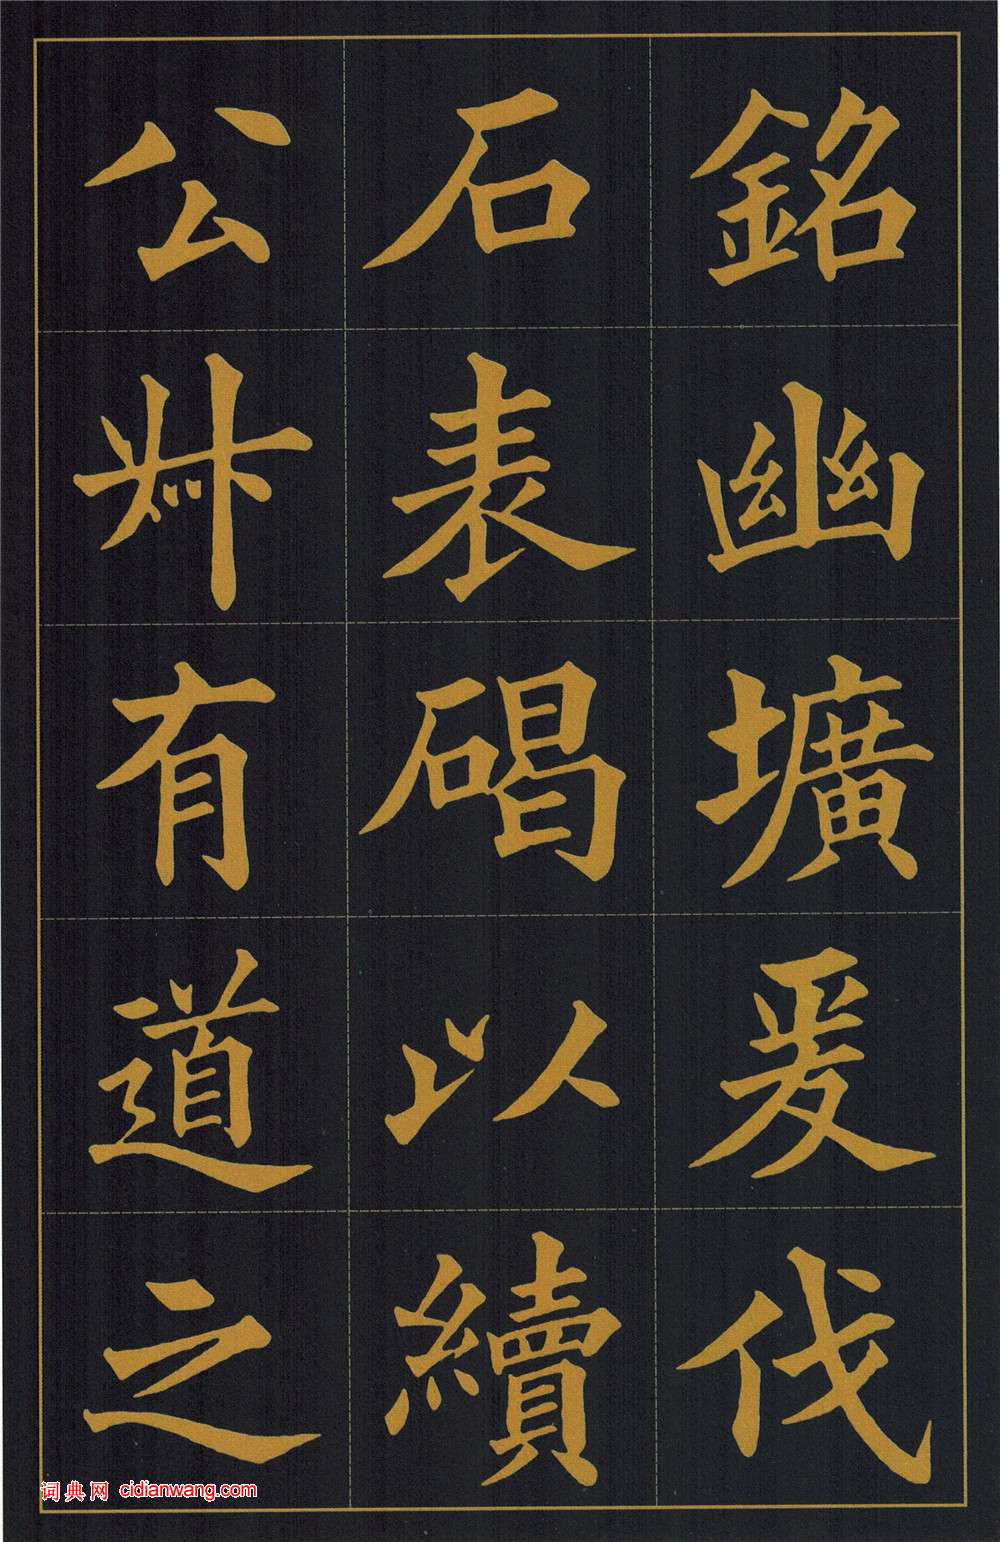 銘幽壙爰伐
石表碣以續
公有道之
词典网 cidianwang.com